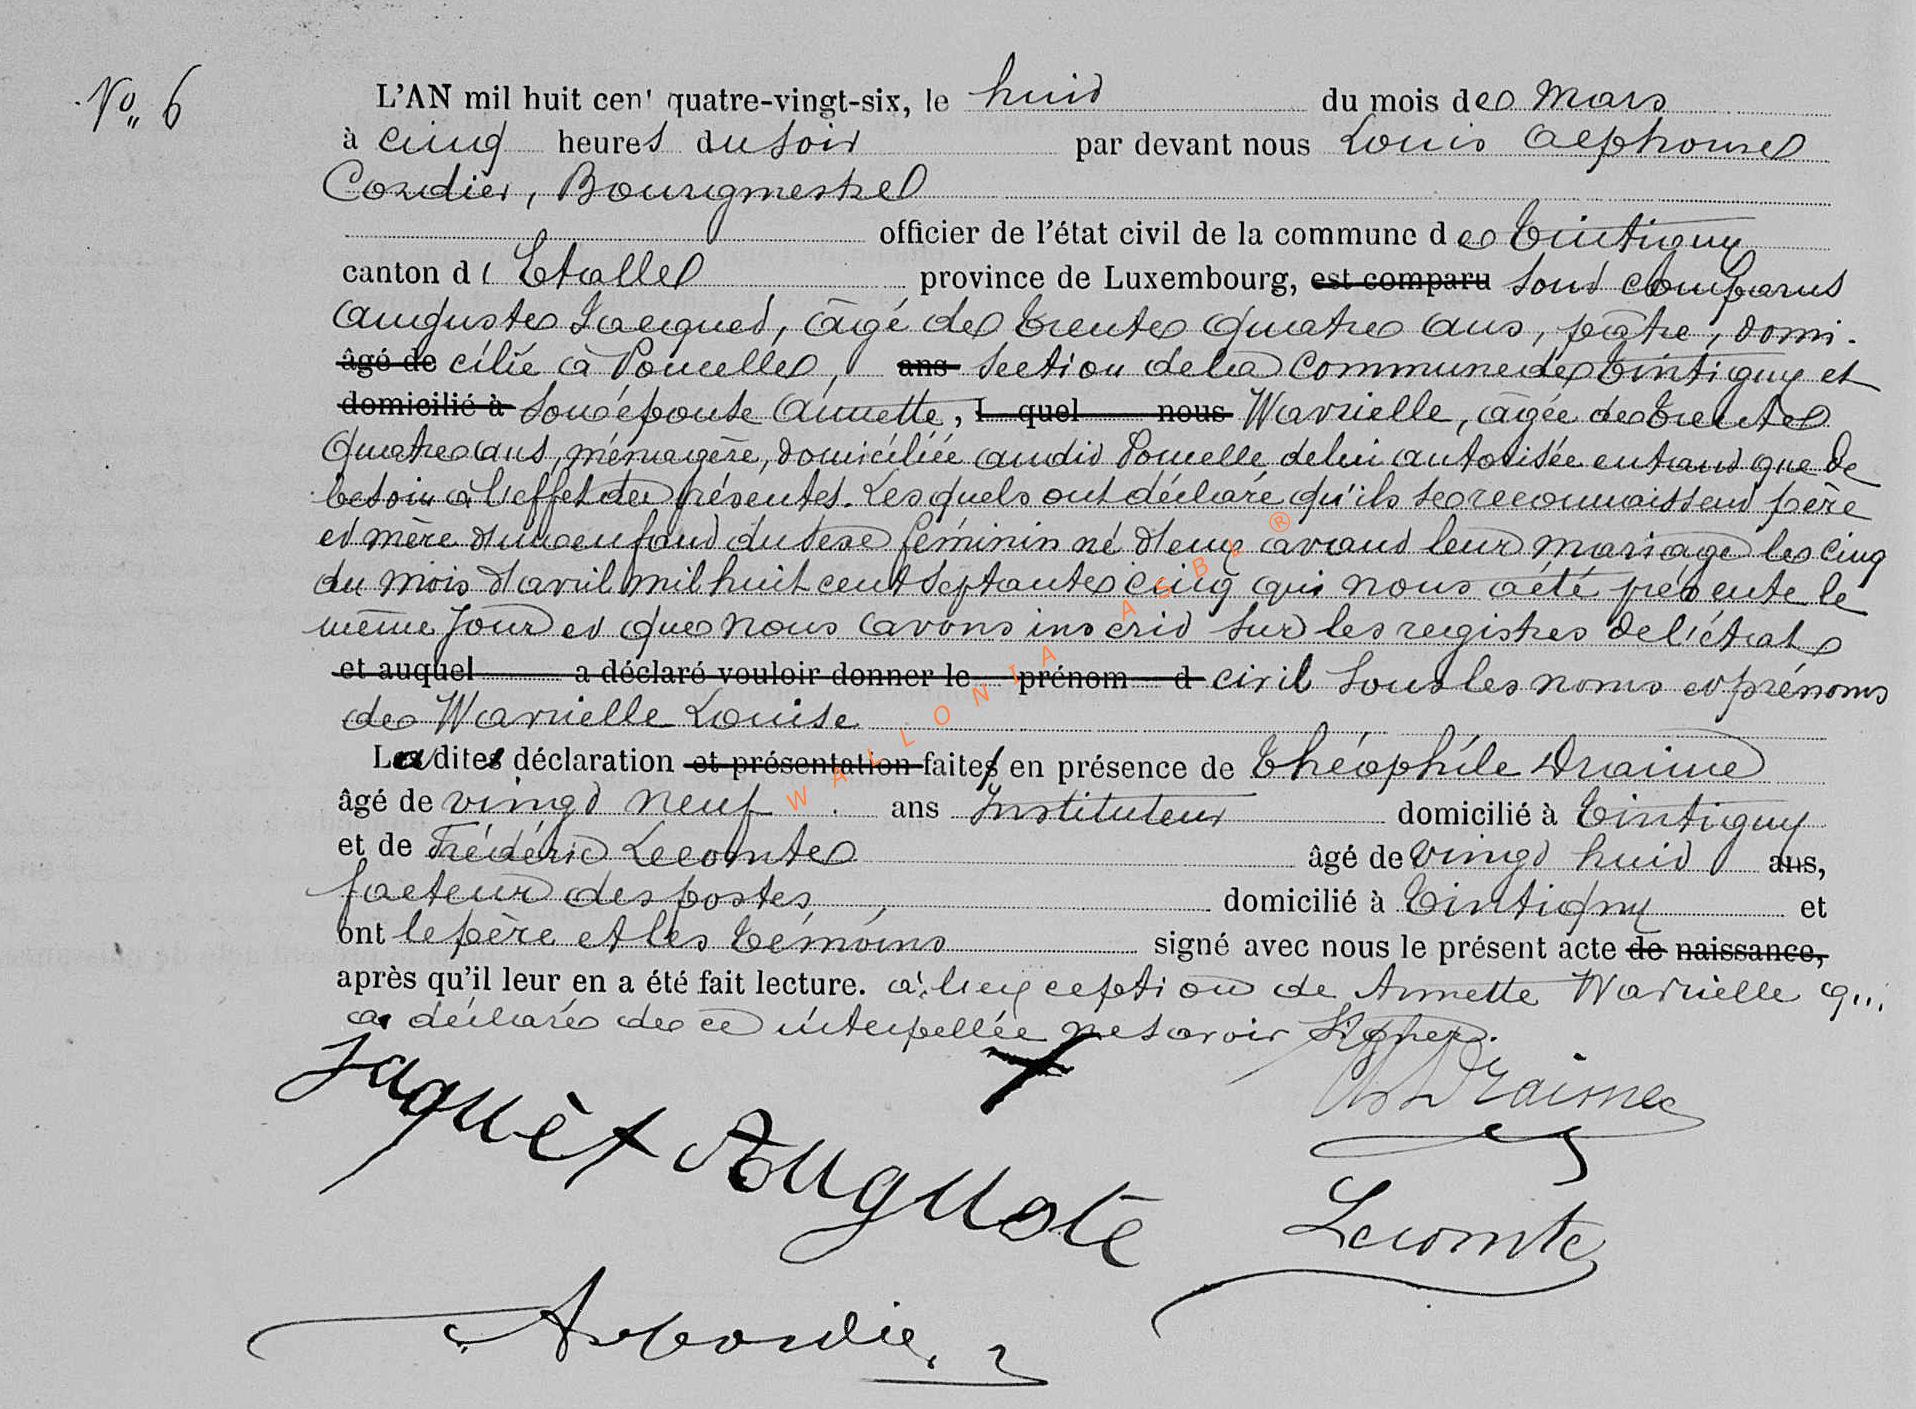 No 6
L'AN mil huit cent quatre-vingt-six, le huit du mois de Mars
à cinq heures du soir par devant nous Louis Alphonse
Cordier, Bourgmestre
officier de l'état civil de la commune de Tintigny
canton d'Etalle province de Luxembourg, est comparu sont comparus
Auguste Jacques, âgé de trente quatre ans, pâtre, domi-
âgé de cilié à Poncelle, ans section de la commune de Tintigny et
domicilié à son épouse Annette, l quel nous Warnielle, âgée de trente
quatre ans, ménagère, domiciliée audit Poncelle, de lui autorisée entant que de
besoin à l'effet des présentes. Lesquels ont déclaré qu'ils se reconnaissent père
et mère d'un enfant du sexe féminin né d'eux avant leur mariage le cinq
du mois d'avril mil huit cent septante cinq qui nous a été présenté le
même jour et que nous avons inscrit sur les registres de l'état
et auquel a déclaré vouloir donner le prénom d civil sous les noms et prénoms
de Warnielle Louise
La dite déclaration et présentation faite en présence de Théophile Draime
âgé de vingt neuf ans Instituteur domicilié à Tintigny
et de Frédéric Lecomte âgé de vingt huit ans,
facteur des postes, domicilié à Tintigny et
ont le père et les témoins signé avec nous le présent acte de naissance,
après qu'il leur en a été fait lecture. à l'exception de Annette Warnielle qui
a déclaré de ce interpellée ne savoir signer.
Jaquèt Auguste
Draime
Lecomte
WALLONIA ASBL ®